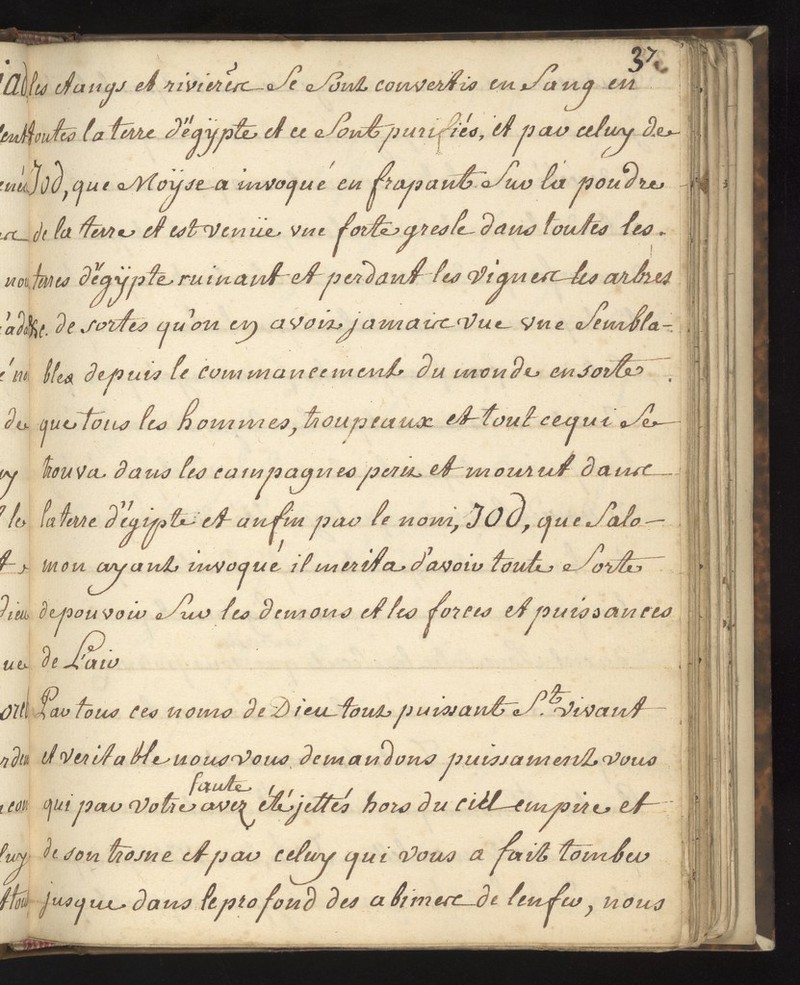 37.
les etangs et rivieres Se Sont convertis en Sang en
toutes la terre d'égÿpte et ce Sont purifiés, et par celuy de
JOD, que Moÿse a invoqué en frapant Sur la poudre
de la terre et est venüe vne forte gresle dans toutes les
terres d'égÿpte ruinant et perdant les vignes les arbres
&c. de sortes qu'on en avoit jamais vue vne Sembla-
bles depuis le commancement du monde ensorte
que tous les hommes, troupeaux et tout cequi Se
trouva dans les campagnes perit et mourut dans
la terre d'égipte et anfin par le nom, JOD, que Salo-
mon ayant invoqué il merita d'avoir toute Sorte
depouvoir Sur les demons et les forces et puissances
de L'air
Par tous ces noms de Dieu tout puissant S.t vivant
et veritable nous vous demandons puissament vous
faute
qui par votre avez été jettés hors du ciel empire et
de son trosne et par celuy qui vous a fait tomber
jusque dans le profond des abimes de lenfer, nous